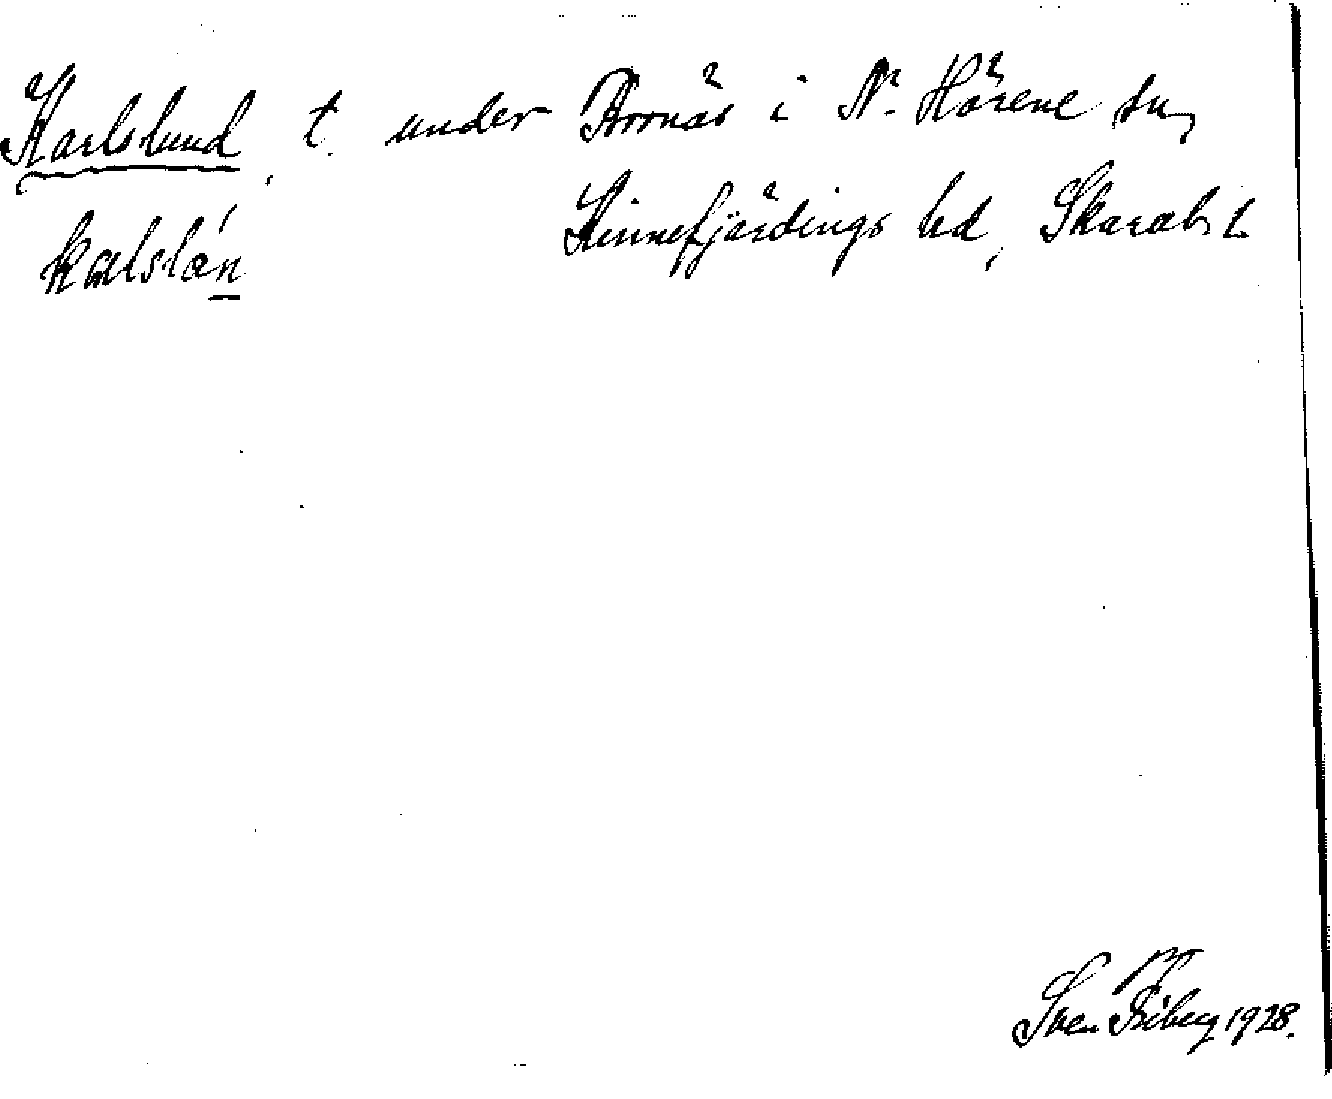 Karlslund, t. under Bronäs i N. Härene sn,
Kinnefjärdings hd, Skarab. l.
kalslán
Sven Friberg 1928.